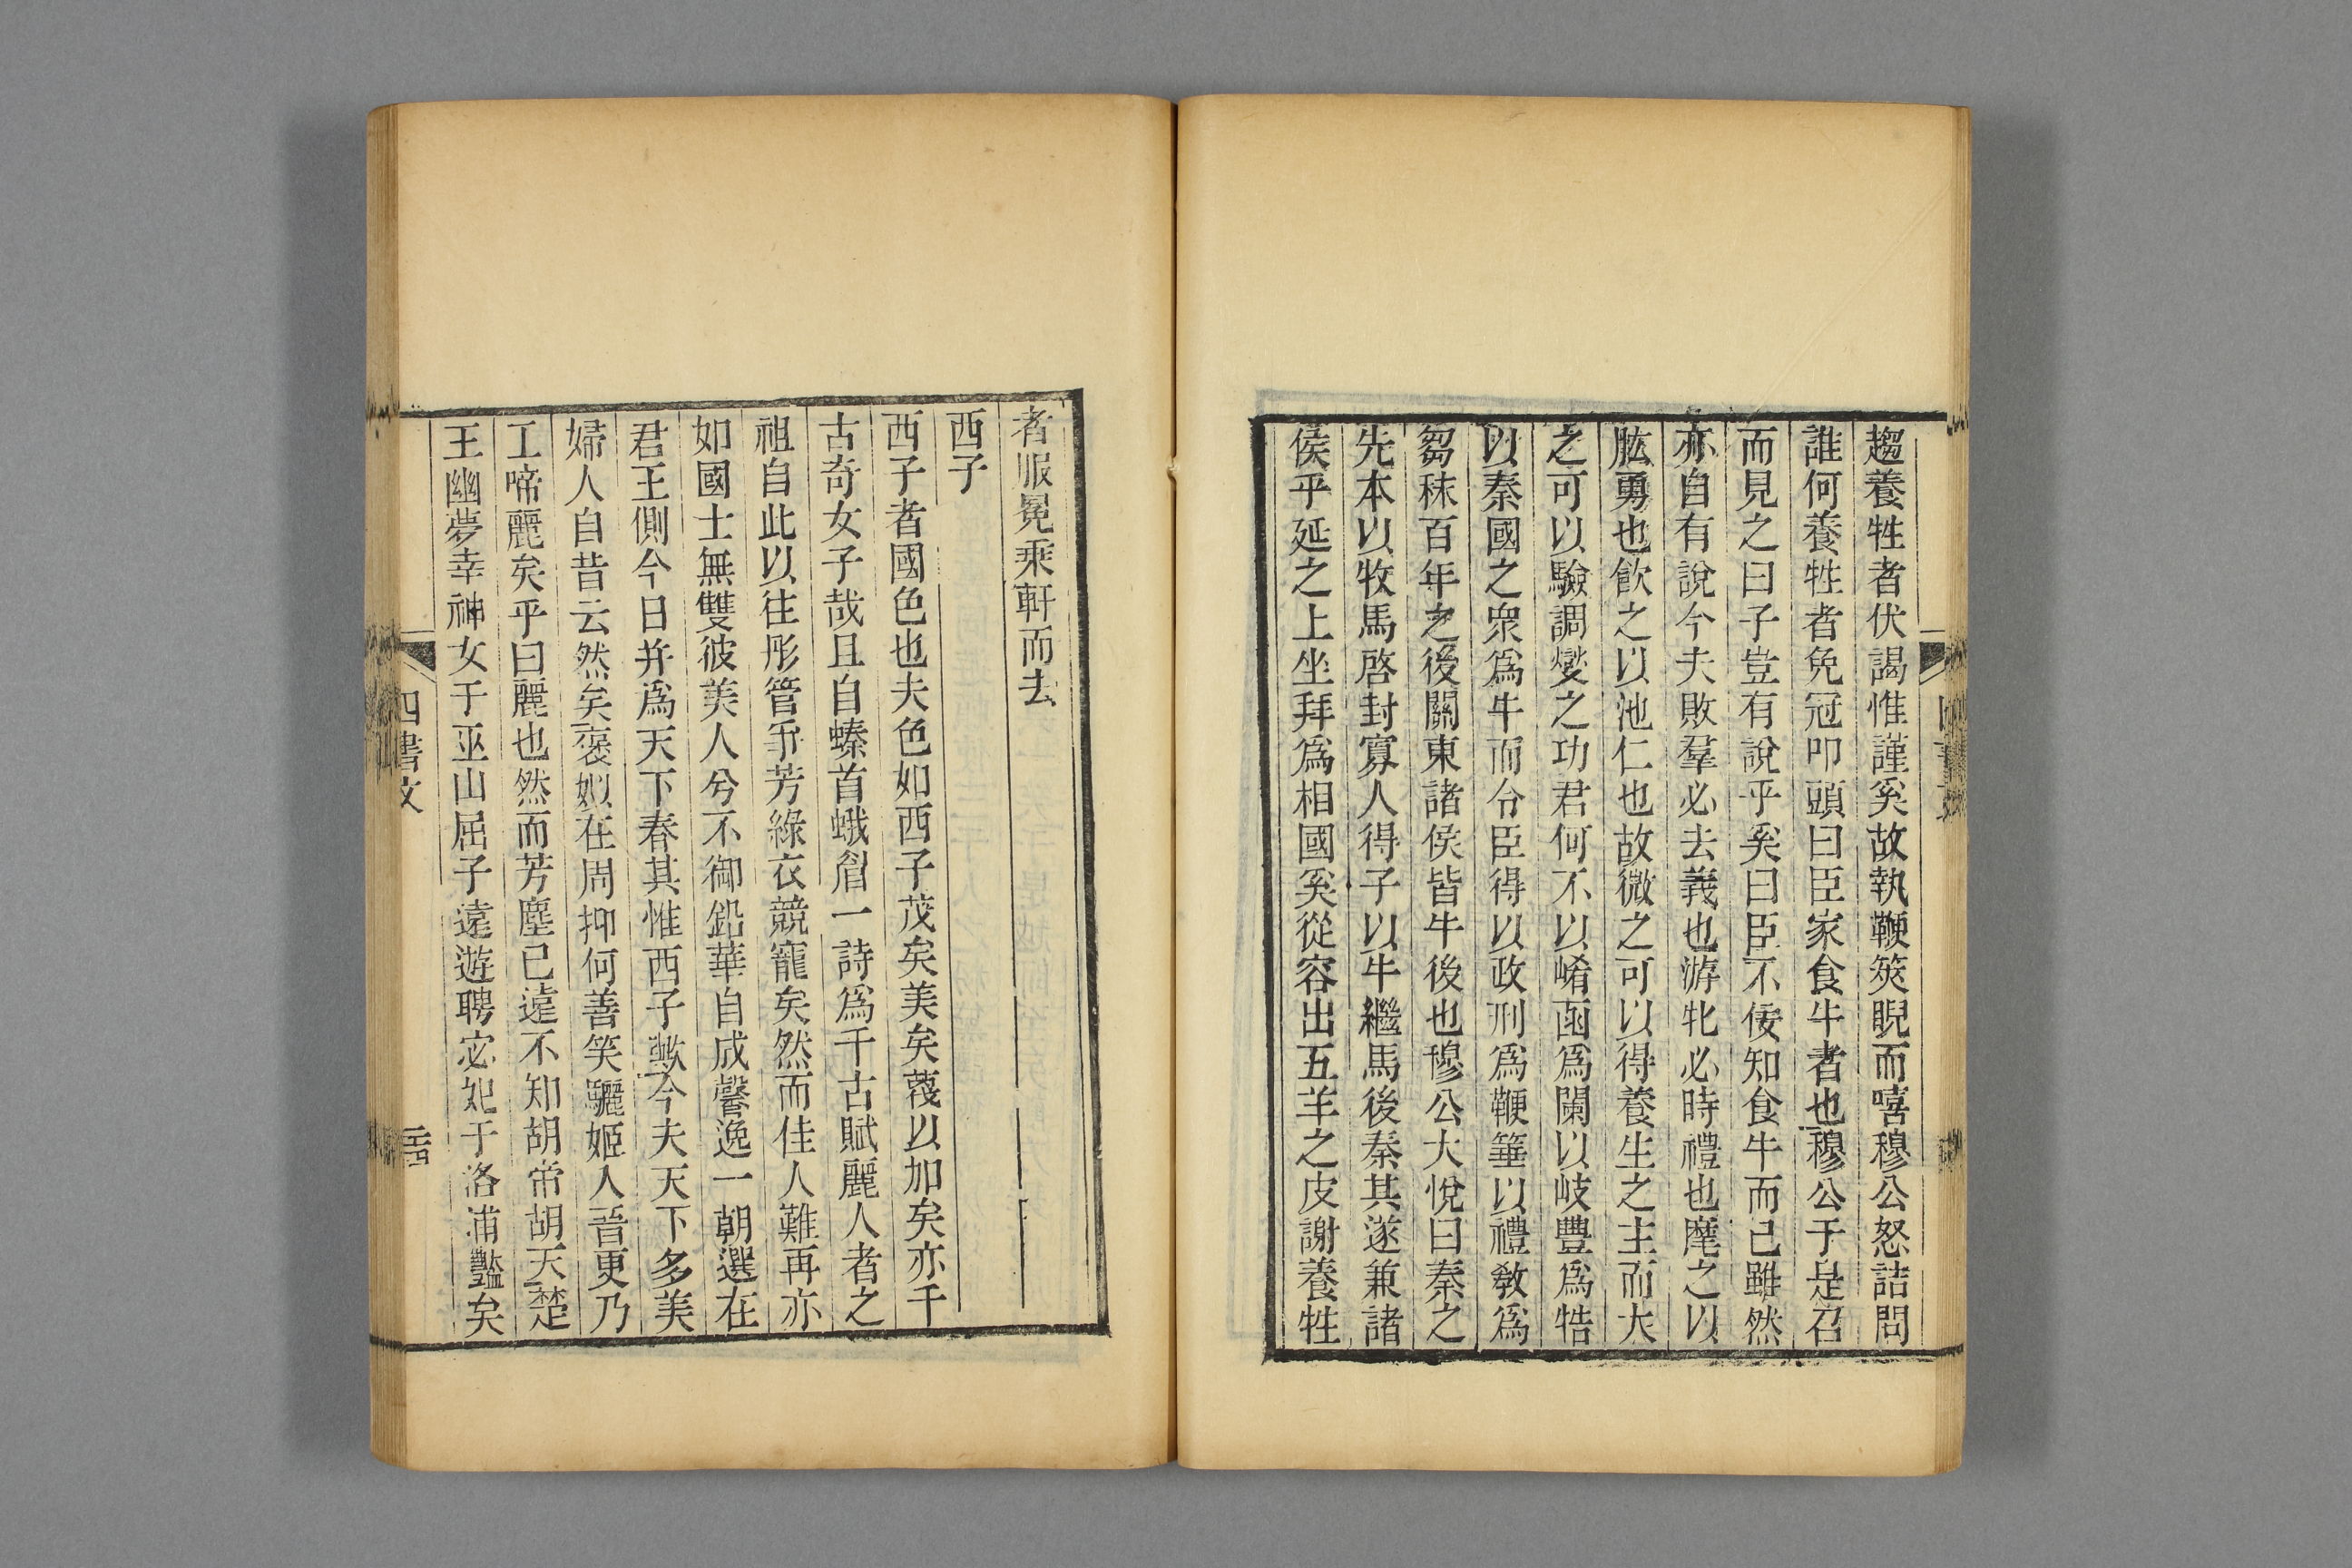 趨養牲者伏謁惟謹奚故執鞭筴睨而嘻穆公怒詰問
誰何養牲者免冠叩頭曰臣家食牛者也穆公于是召
而見之曰子豈有說乎奚曰臣不佞知食牛而已雖然
亦自有說今夫敗羣必去義也游牝必時禮也麾之以
肱勇也飲之以池仁也故微之可以得養生之主而大
之可以驗調燮之功君何不以崤函爲闌以岐豐爲牿
以秦國之衆爲牛而令臣得以政刑爲鞭箠以禮敎爲
芻秣百年之後關東諸侯皆牛後也穆公大悅曰秦之
先本以牧馬啓封寡人得子以牛繼馬後秦其遂兼諸
侯乎延之上坐拜爲相國奚從容出五羊之皮謝養牲
者服冕乘軒而去
西子
西子者國色也夫色如西子茂矣美矣蔑以加矣亦千
古奇女子哉且自螓首蛾眉一詩爲千古賦麗人者之
祖自此以往彤管爭芳綠衣競寵矣然而佳人難再亦
如國士無雙彼美人兮不御鉛華自成馨逸一朝選在
君王側今日并爲天下春其惟西子歟今夫天下多美
婦人自昔云然矣褒姒在周抑何善笑驪姬人晉更乃
工啼麗矣乎曰麗也然而芳塵已遠不知胡帝胡天楚
王幽夢幸神女于巫山屈子遠遊聘宓妃于洛浦豔矣
四書文